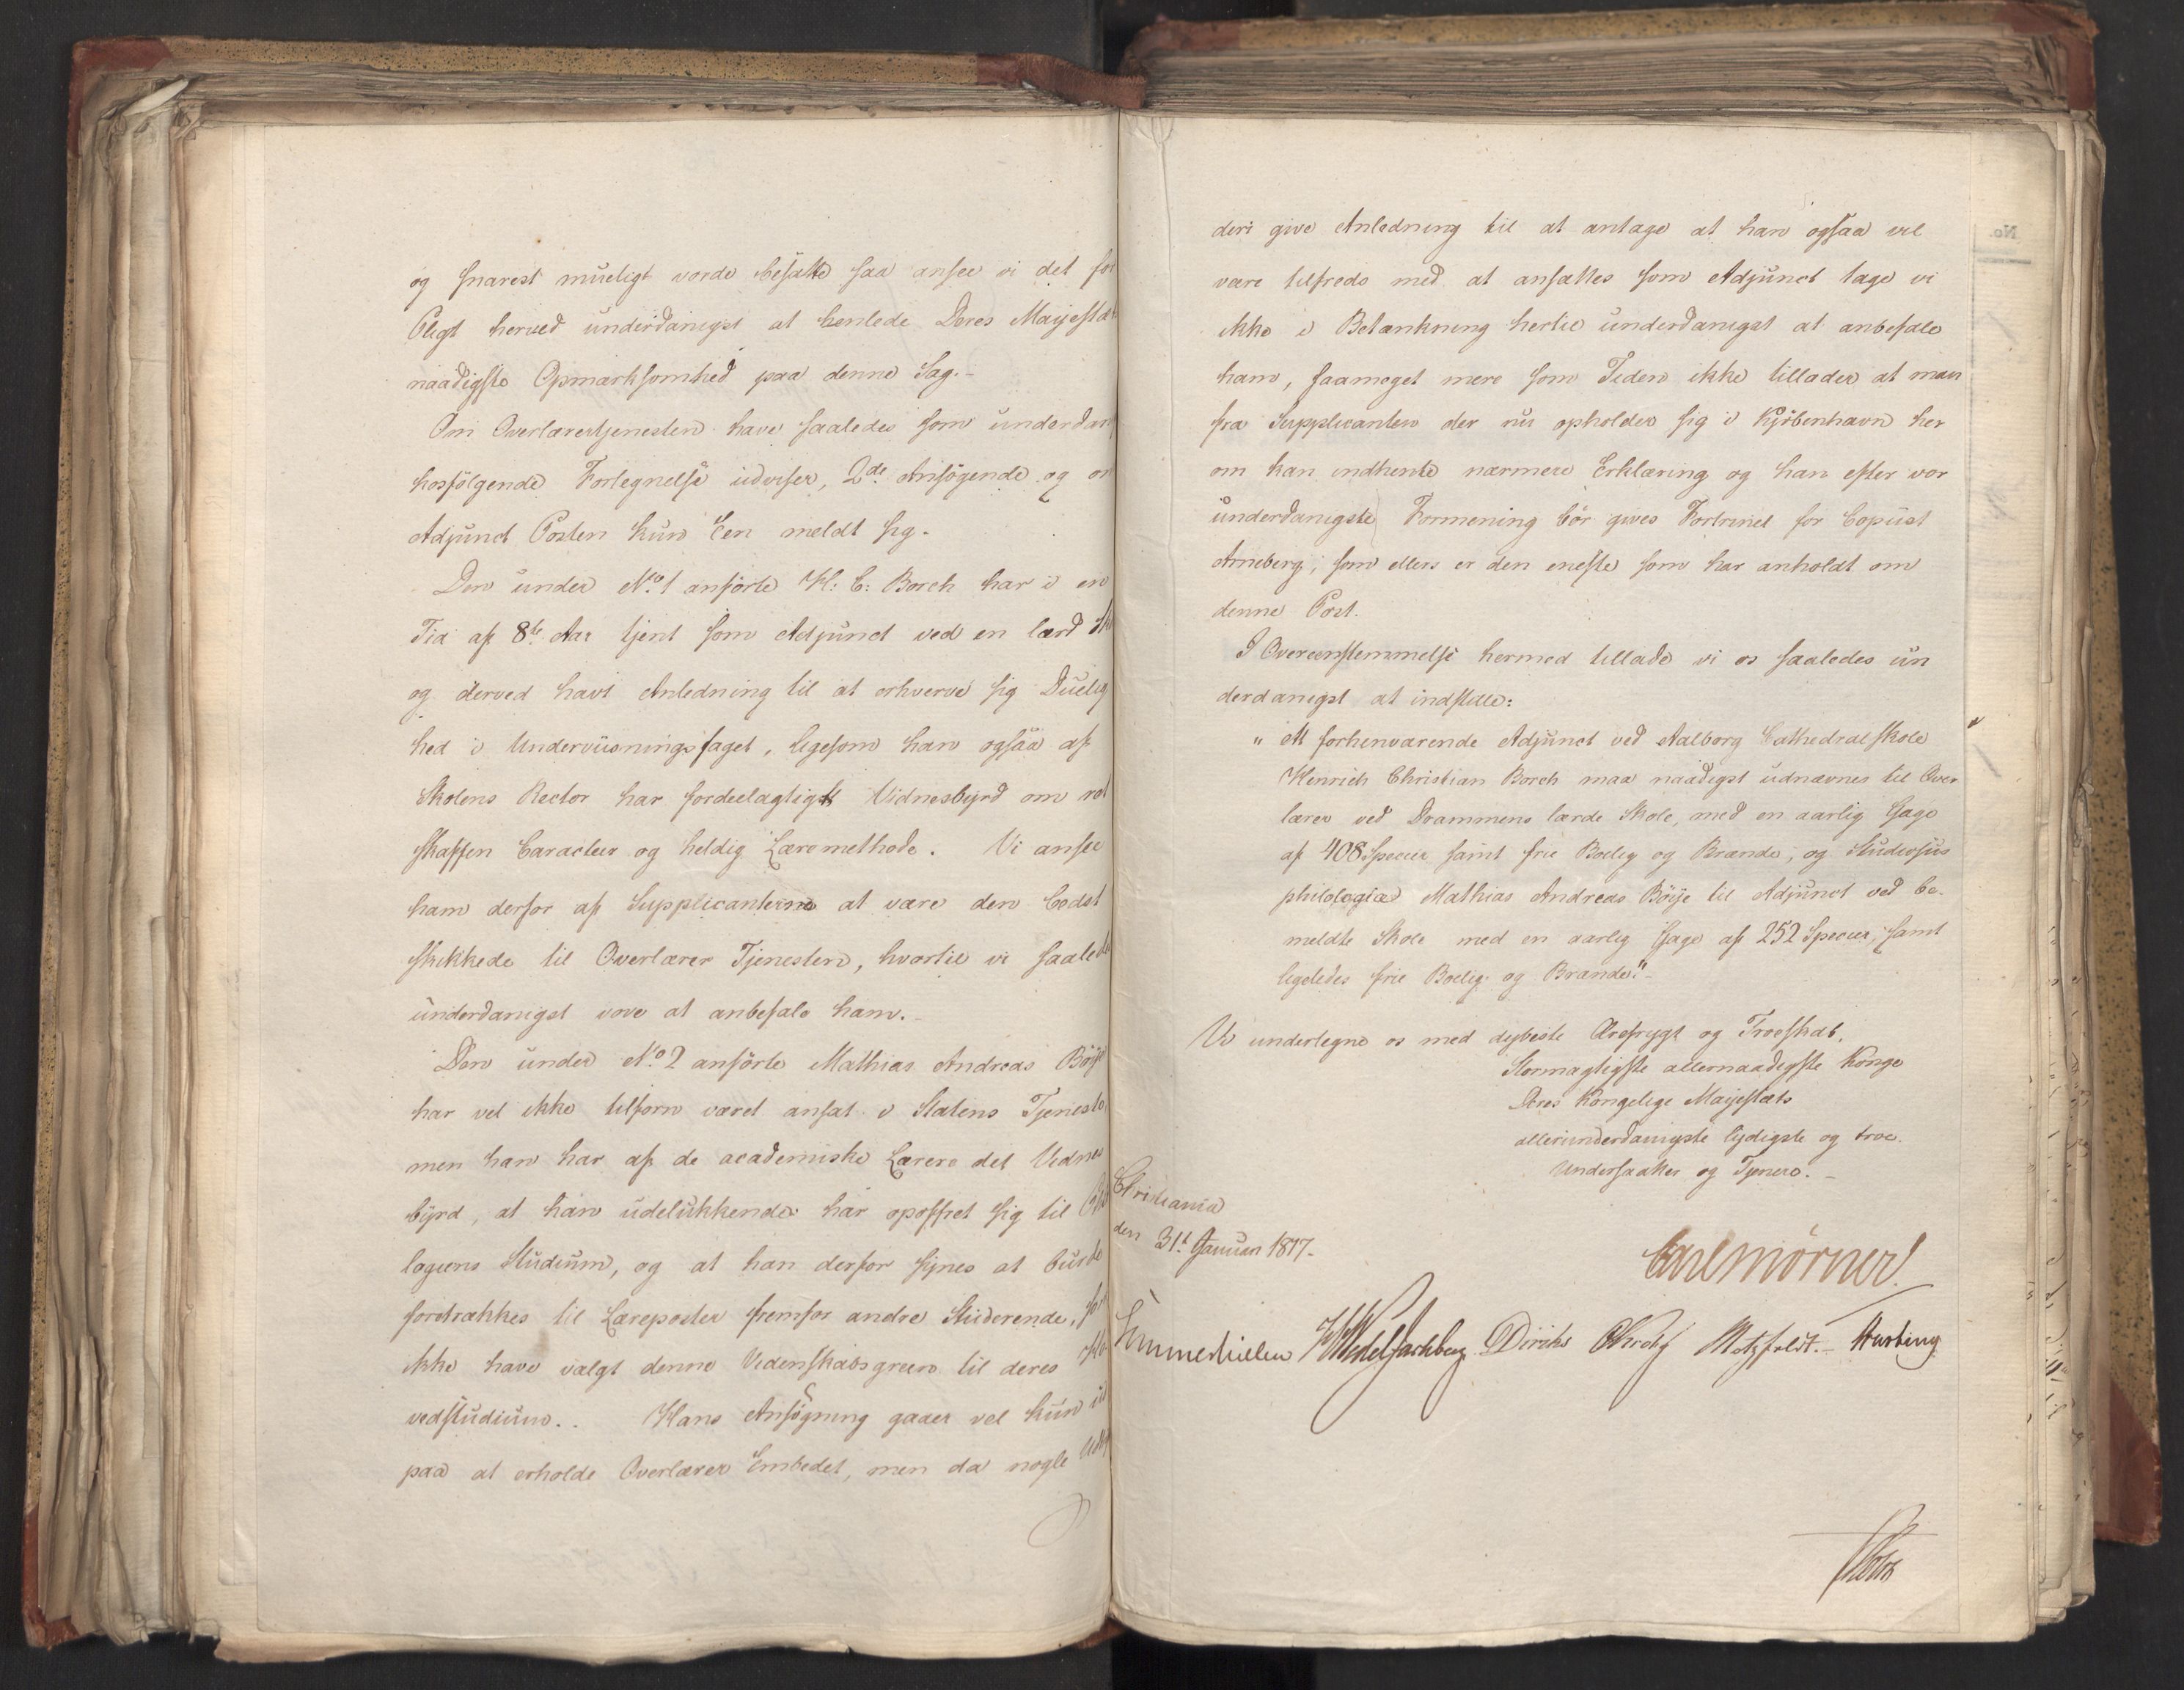 og snarest mueligt vorde besatte saa ansee vi det for
Pligt herved underdanigst at henlede Deres Majestæts
naadigste Opmærksomhed paa denne Sag.-
Om Overlærertjenesten have saaledes som underdan
hosfölgende Fortegnelse udviser, 2de Ansögende og om
Adjunct Posten kun Een meldt sig.
Den under No. 1 anförte H: C: Borch har i en
Tid af 8te Aar tjent som Adjunct ved en lærd Sko
og derved havt Anledning til at erhverve sig Duelig
hed i Underviisningsfaget, ligesom han ogsaa af
Skolens Rector har fordeelagtigt Vidnesbyrd om ret
skaffen Caracteer og heldig Læremethode. Vi ansee
ham derfor af Supplicanterne at være den bedst
skikkede til Overlærer Tjenesten, hvortil vi saalede
underdanigst vove at anbefale ham.-
Den under No. 2 anförte Mathias Andreas Böije
har vel ikke tilforn været ansat i Statens Tjeneste
men han har af de academiske Lærere det Vidnes
byrd, at han udelukkende har opoffret sig til Philo
logiens Studium, og at han derfor synes at burde
foretrækkes til Læreposter fremfor andre Studerende, som
ikke have valgt denne Videnskabsgreen til deres Ho
vedstudium.. Hans Ansögning gaaer vel kun ud
paa at erholde Overlærer Embedet, men da nogle Udtryk
deri give Anledning til at antage at han ogsaa vil
være tilfreds med at ansættes som Adjunct tage vi
ikke i Betænkning hertil underdanigst at anbefale
ham, saameget mere som Tiden ikke tillader at man
fra Supplicanten der nu opholder sig i Kjöbenhavn her
om kan indhente nærmere Erklæring og han efter vor
underdanigste Formening bör gives Fortrinet for Copiist
Arneberg, som ellers er den eneste som har anholdt om
denne Post.
I Overeenstemmelse hermed tillade vi os saaledes un
derdanigst at indstille:
" At forhenværende Adjunct ved Aalborg Cathedralskole
Henrich Christian Borch maa naadigst udnævnes til Over
lærer ved Drammens lærde Skole, med en aarlig Gage
af 408 Specier samt frie Bolig og Brænde, og Studiosus
philologiæ Mathias Andreas Böije til Adjunct ved be-
meldte Skole med en aarlig Gage af 252 Specier, samt
ligeledes frie Bolig og Brænde."-
Vi undertegne os med dybeste Ærefrygt og Troeskab.
Stormægtigste allernaadigste Konge
Deres Kongelige Majestæts
allerunderdanigste lydigste og troe
Undersaatter og Tjenere.-
Christiania
den 31te Januar 1817.
Carl Mörner
Sommerhielm HWedelJarlsberg Diriks CKrohg Motzfeldt.- Hunting
Holst